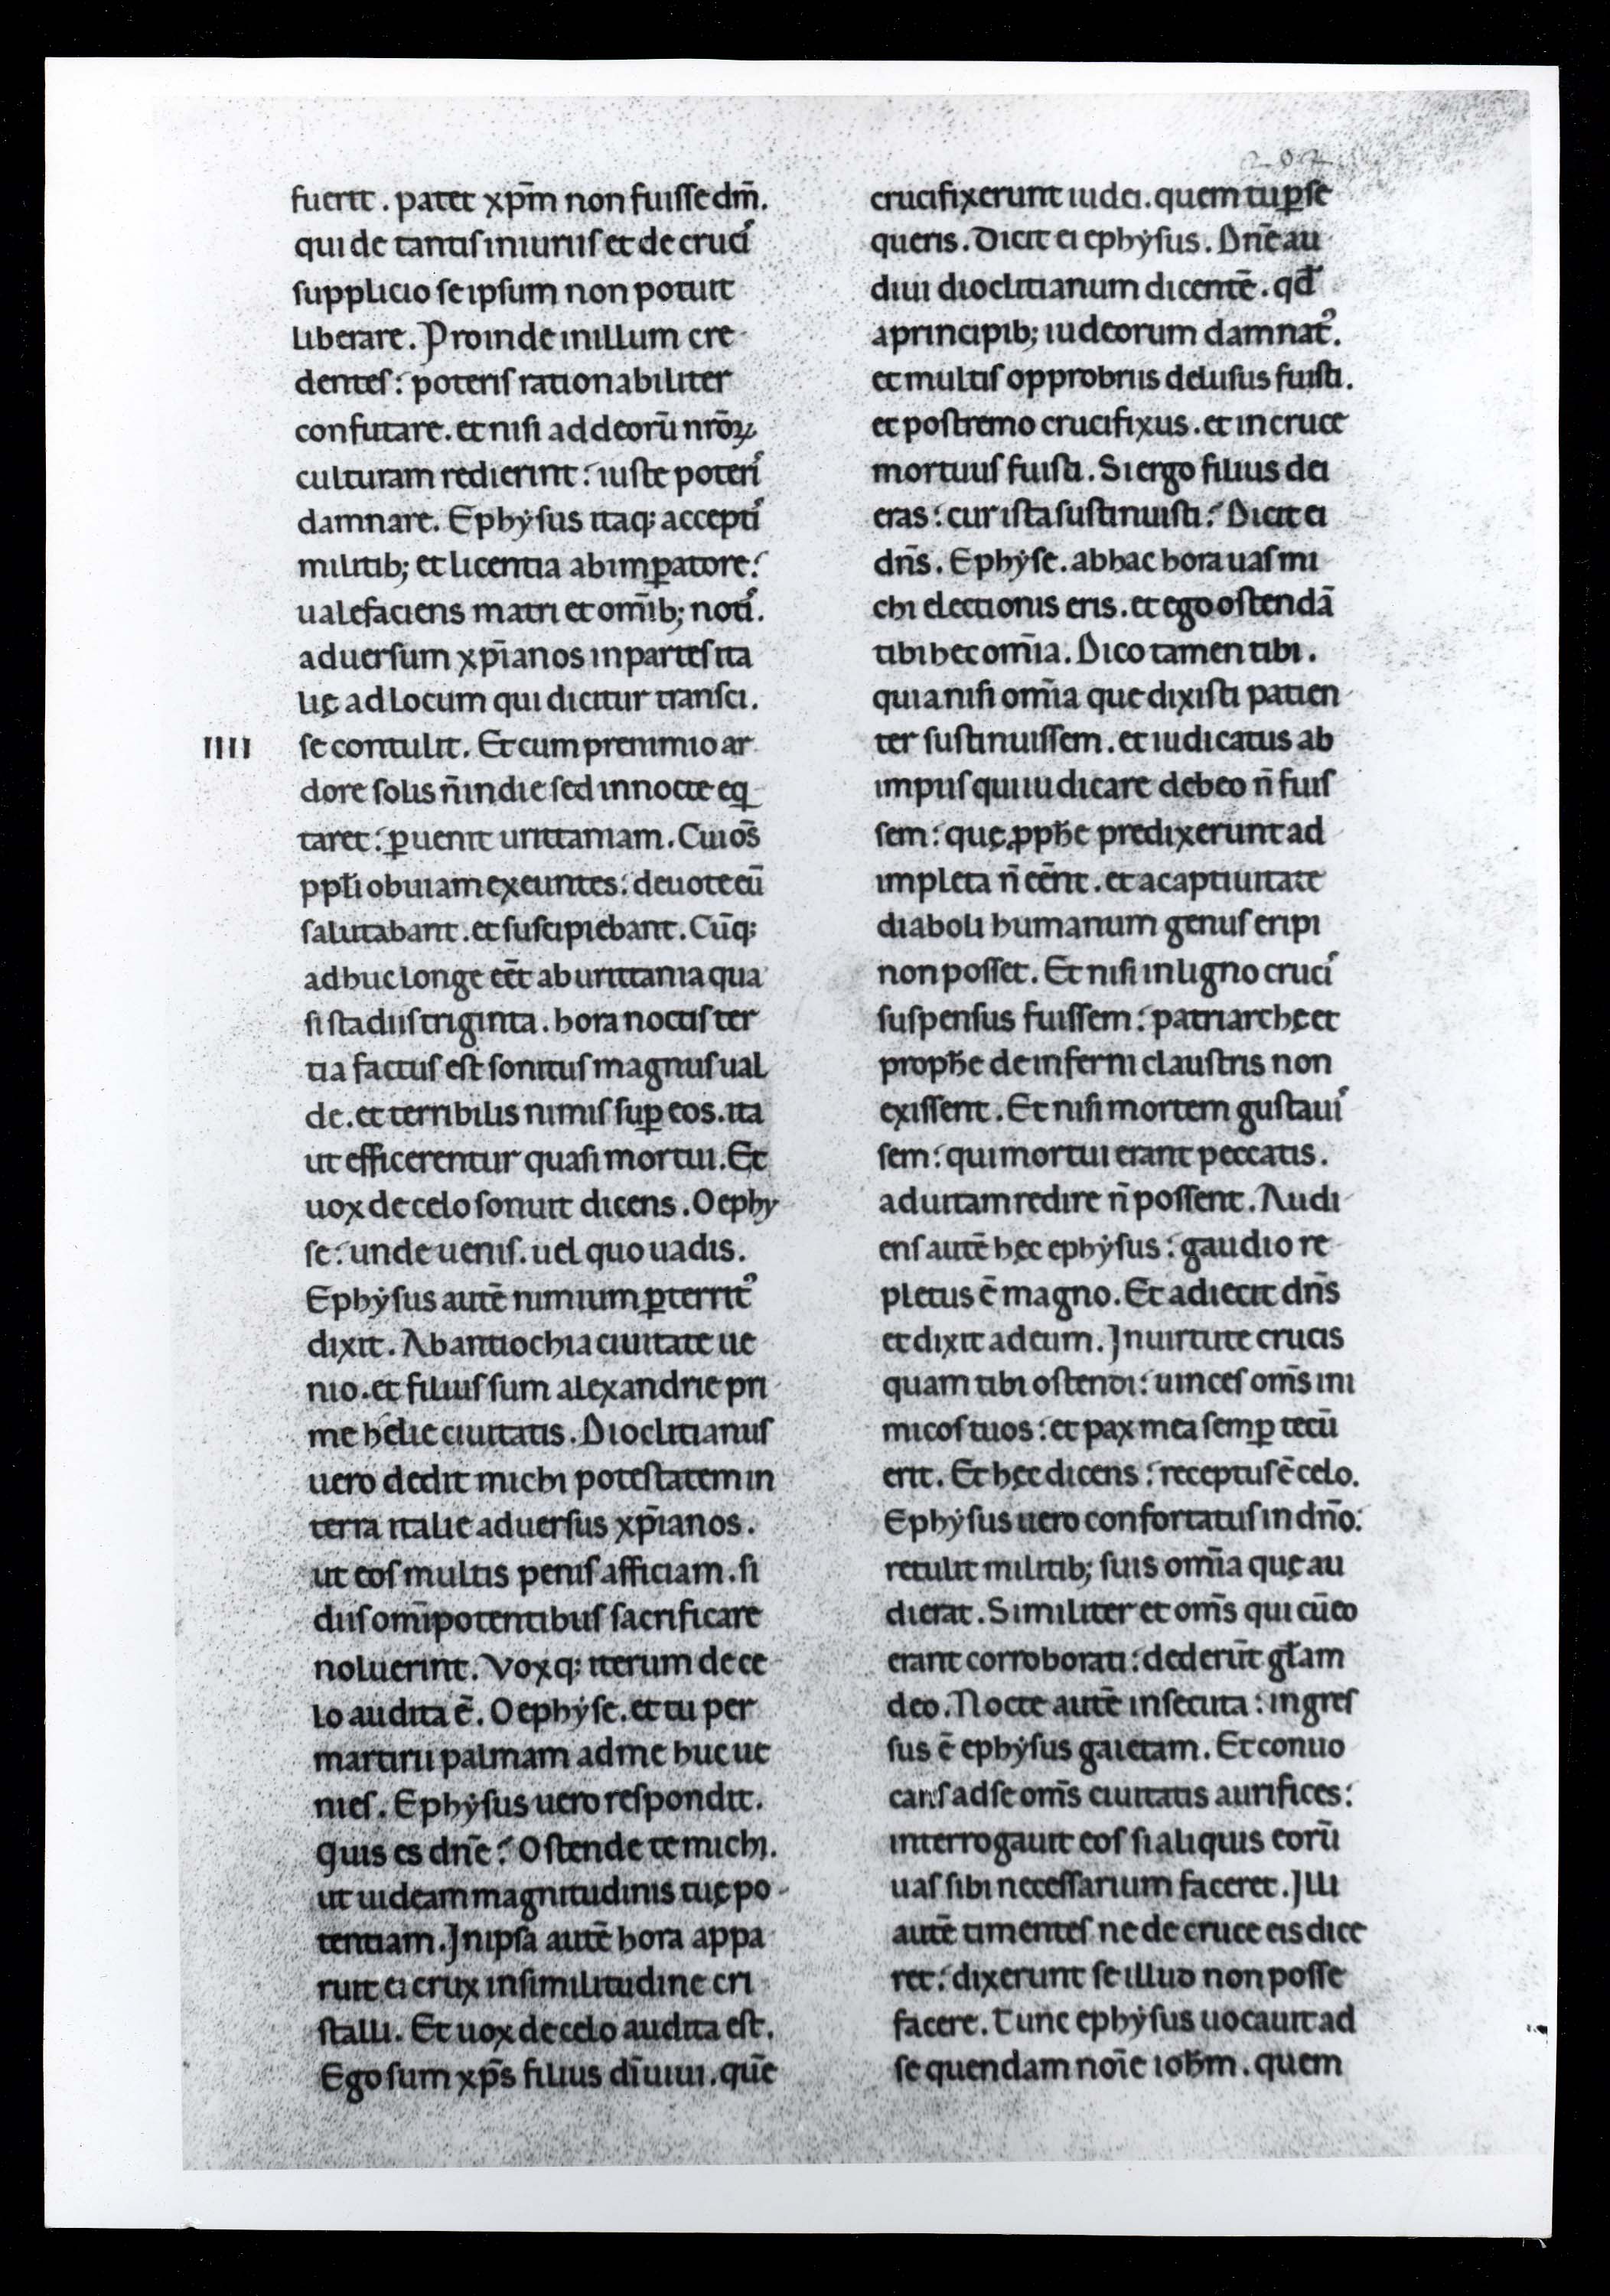 202
fuerit . patet xp̄m non fuisse dm̄.
qui de tantis iniuriis et de cruci᷒
supplicio se ipsum non potuit
liberare. Proinde in illum cre
dentes : poteris rationabiliter
confutare . et nisi ad deorū nr̄oꝝ
culturam redierint : iuste poteri᷒
damnare. Ephẏsus itaq; accepti᷒
militib; et licentia ab imꝑatore :
ualefaciens matri et om̄ib; noti᷒.
aduersum xp̄ianos in partes ita
lię ad locum qui dicitur transci.
IIII
se contulit. Et cum pre nimio ar
dore solis n̄ in die sed in nocte eq
taret : ꝑuenit urittaniam. Cui om̄s
pp̄li obuiam exeuntes : deuote eū
salutabant . et suscipiebant. Cūq;
adhuc longe eēt ab urittania qua
si stadiis triginta . hora noctis ter
tia factus est sonitus magnus ual
de . et terribilis nimis suꝑ eos . ita
ut efficerentur quasi mortui. Et
uox de celo sonuit dicens . O ephy
se : unde uenis . uel quo uadis.
Ephẏsus autē nimium ꝑterrit᷒
dixit. Ab antiochia ciuitate ue
nio . et filius sum alexandrie pri
me helie ciuitatis. Dioclitianus
uero dedit michi potestatem in
terra italie aduersus xp̄ianos.
ut eos multis penis afficiam . si
diis om̄ipotentibus sacrificare
noluerint. Voxq; iterum de ce
lo audita ē. O ephẏse . et tu per
martirii palmam ad me huc ue
nies. Ephẏsus uero respondit.
Quis es dn̄e : Ostende te michi.
ut uideam magnitudinis tuę po
tentiam. Jn ipsa autē hora appa
ruit ei crux in similitudine cri
stalli. Et uox de celo audita est.
Ego sum xp̄s filius dī uiui . quē
crucifixerunt iudei . quem tu ꝑse
queris. Dicit ei ephẏsus. Dn̄e au
diui dioclitianum dicentē . qđ
a principib; iudeorum damnat᷒.
et multis opprobriis delusus fuisti.
et postremo crucifixus . et in cruce
mortuus fuisti. Si ergo filius dei
eras : cur ista sustinuisti : Dicit ei
dn̄s. Ephẏse . ab hac hora uas mi
chi electionis eris . et ego ostendā
tibi hec om̄ia. Dico tamen tibi.
quia nisi om̄ia que dixisti patien
ter sustinuissem . et iudicatus ab
impiis qui iudicare debeo n̄ fuis
sem : quę ꝓph̄e predixerunt ad
impleta n̄ eēnt . et a captiuitate
diaboli humanum genus eripi
non posset. Et nisi in ligno cruci᷒
suspensus fuissem : patriarchę et
proph̄e de inferni claustris non
exissent. Et nisi mortem gustaui᷒
sem : qui mortui erant peccatis.
ad uitam redire n̄ possent. Audi
ens autē hęc ephẏsus : gaudio re
pletus ē magno. Et adiecit dn̄s
et dixit ad eum. Jn uirtute crucis
quam tibi ostendi : uinces om̄s ini
micos tuos : et pax mea semꝑ tecū
erit. Et hęc dicens : receptus ē celo.
Ephẏsus uero confortatus in dn̄o :
retulit militib; suis om̄ia quę au
dierat. Similiter et om̄s qui cū eo
erant corroborati : dederūt gl̄am
deo. Nocte autē insecuta : ingres
sus ē ephẏsus gaietam. Et conuo
cans ad se om̄s ciuitatis aurifices :
interrogauit eos si aliquis eorū
uas sibi necessarium faceret. Jlli
autē timentes ne de cruce eis dice
ret : dixerunt se illud non posse
facere. Tunc ephẏsus uocauit ad
se quendam noīe ioh̄m . quem